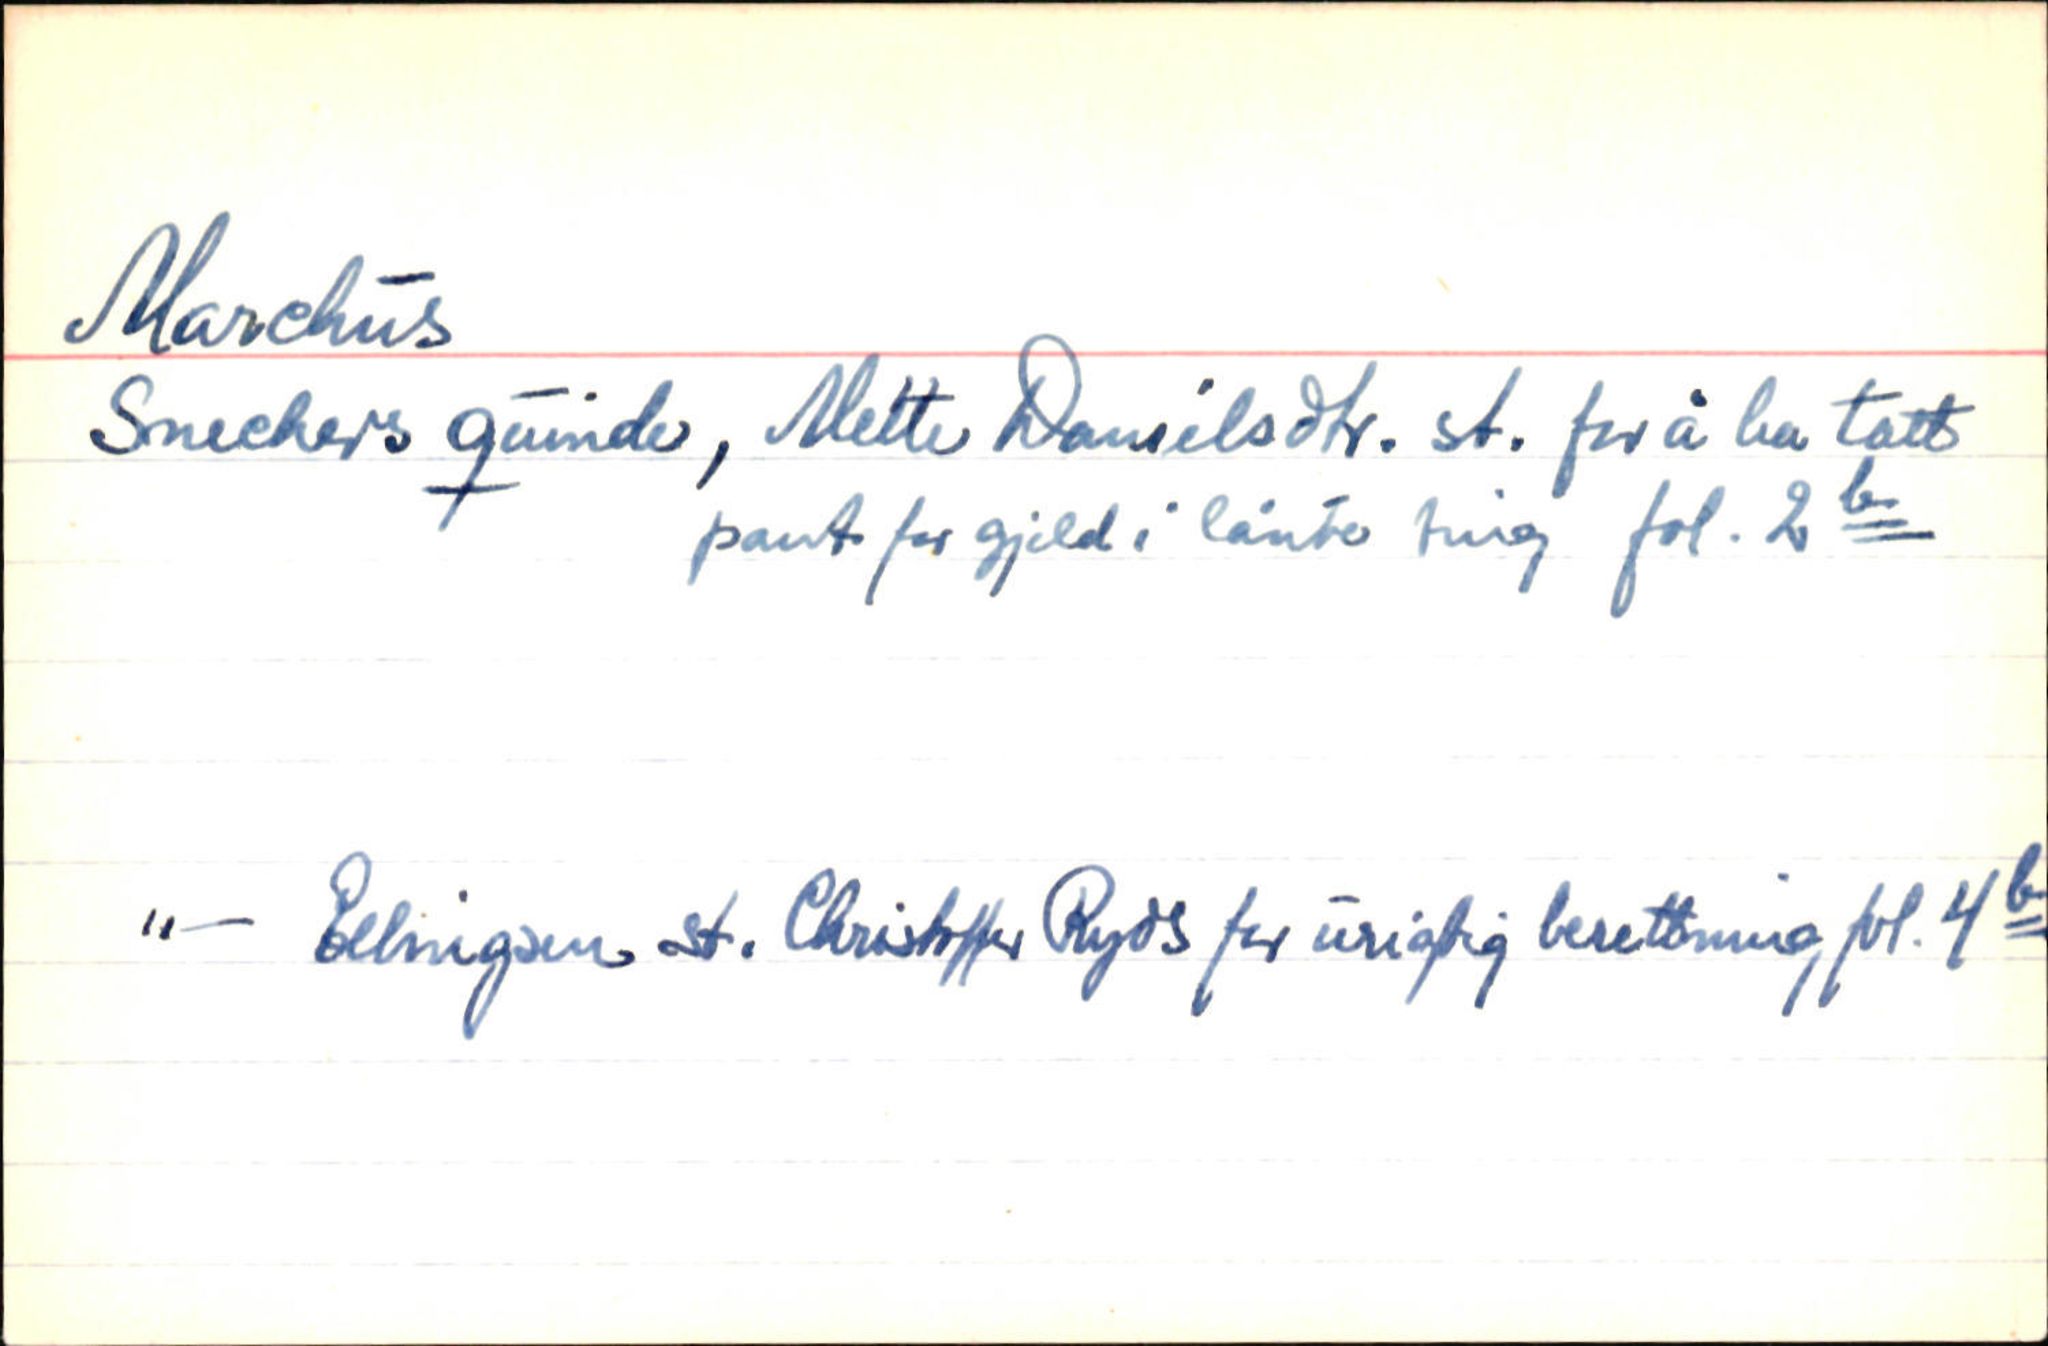 Marchus
Snechers quinde, Mette Danielsdtr. st. for å ha tatt
pant for gjeld i lånte ting fol. 2 b
"— Ellingsen st. Christoffer Ryds for urigtig berettning fol. 4 b